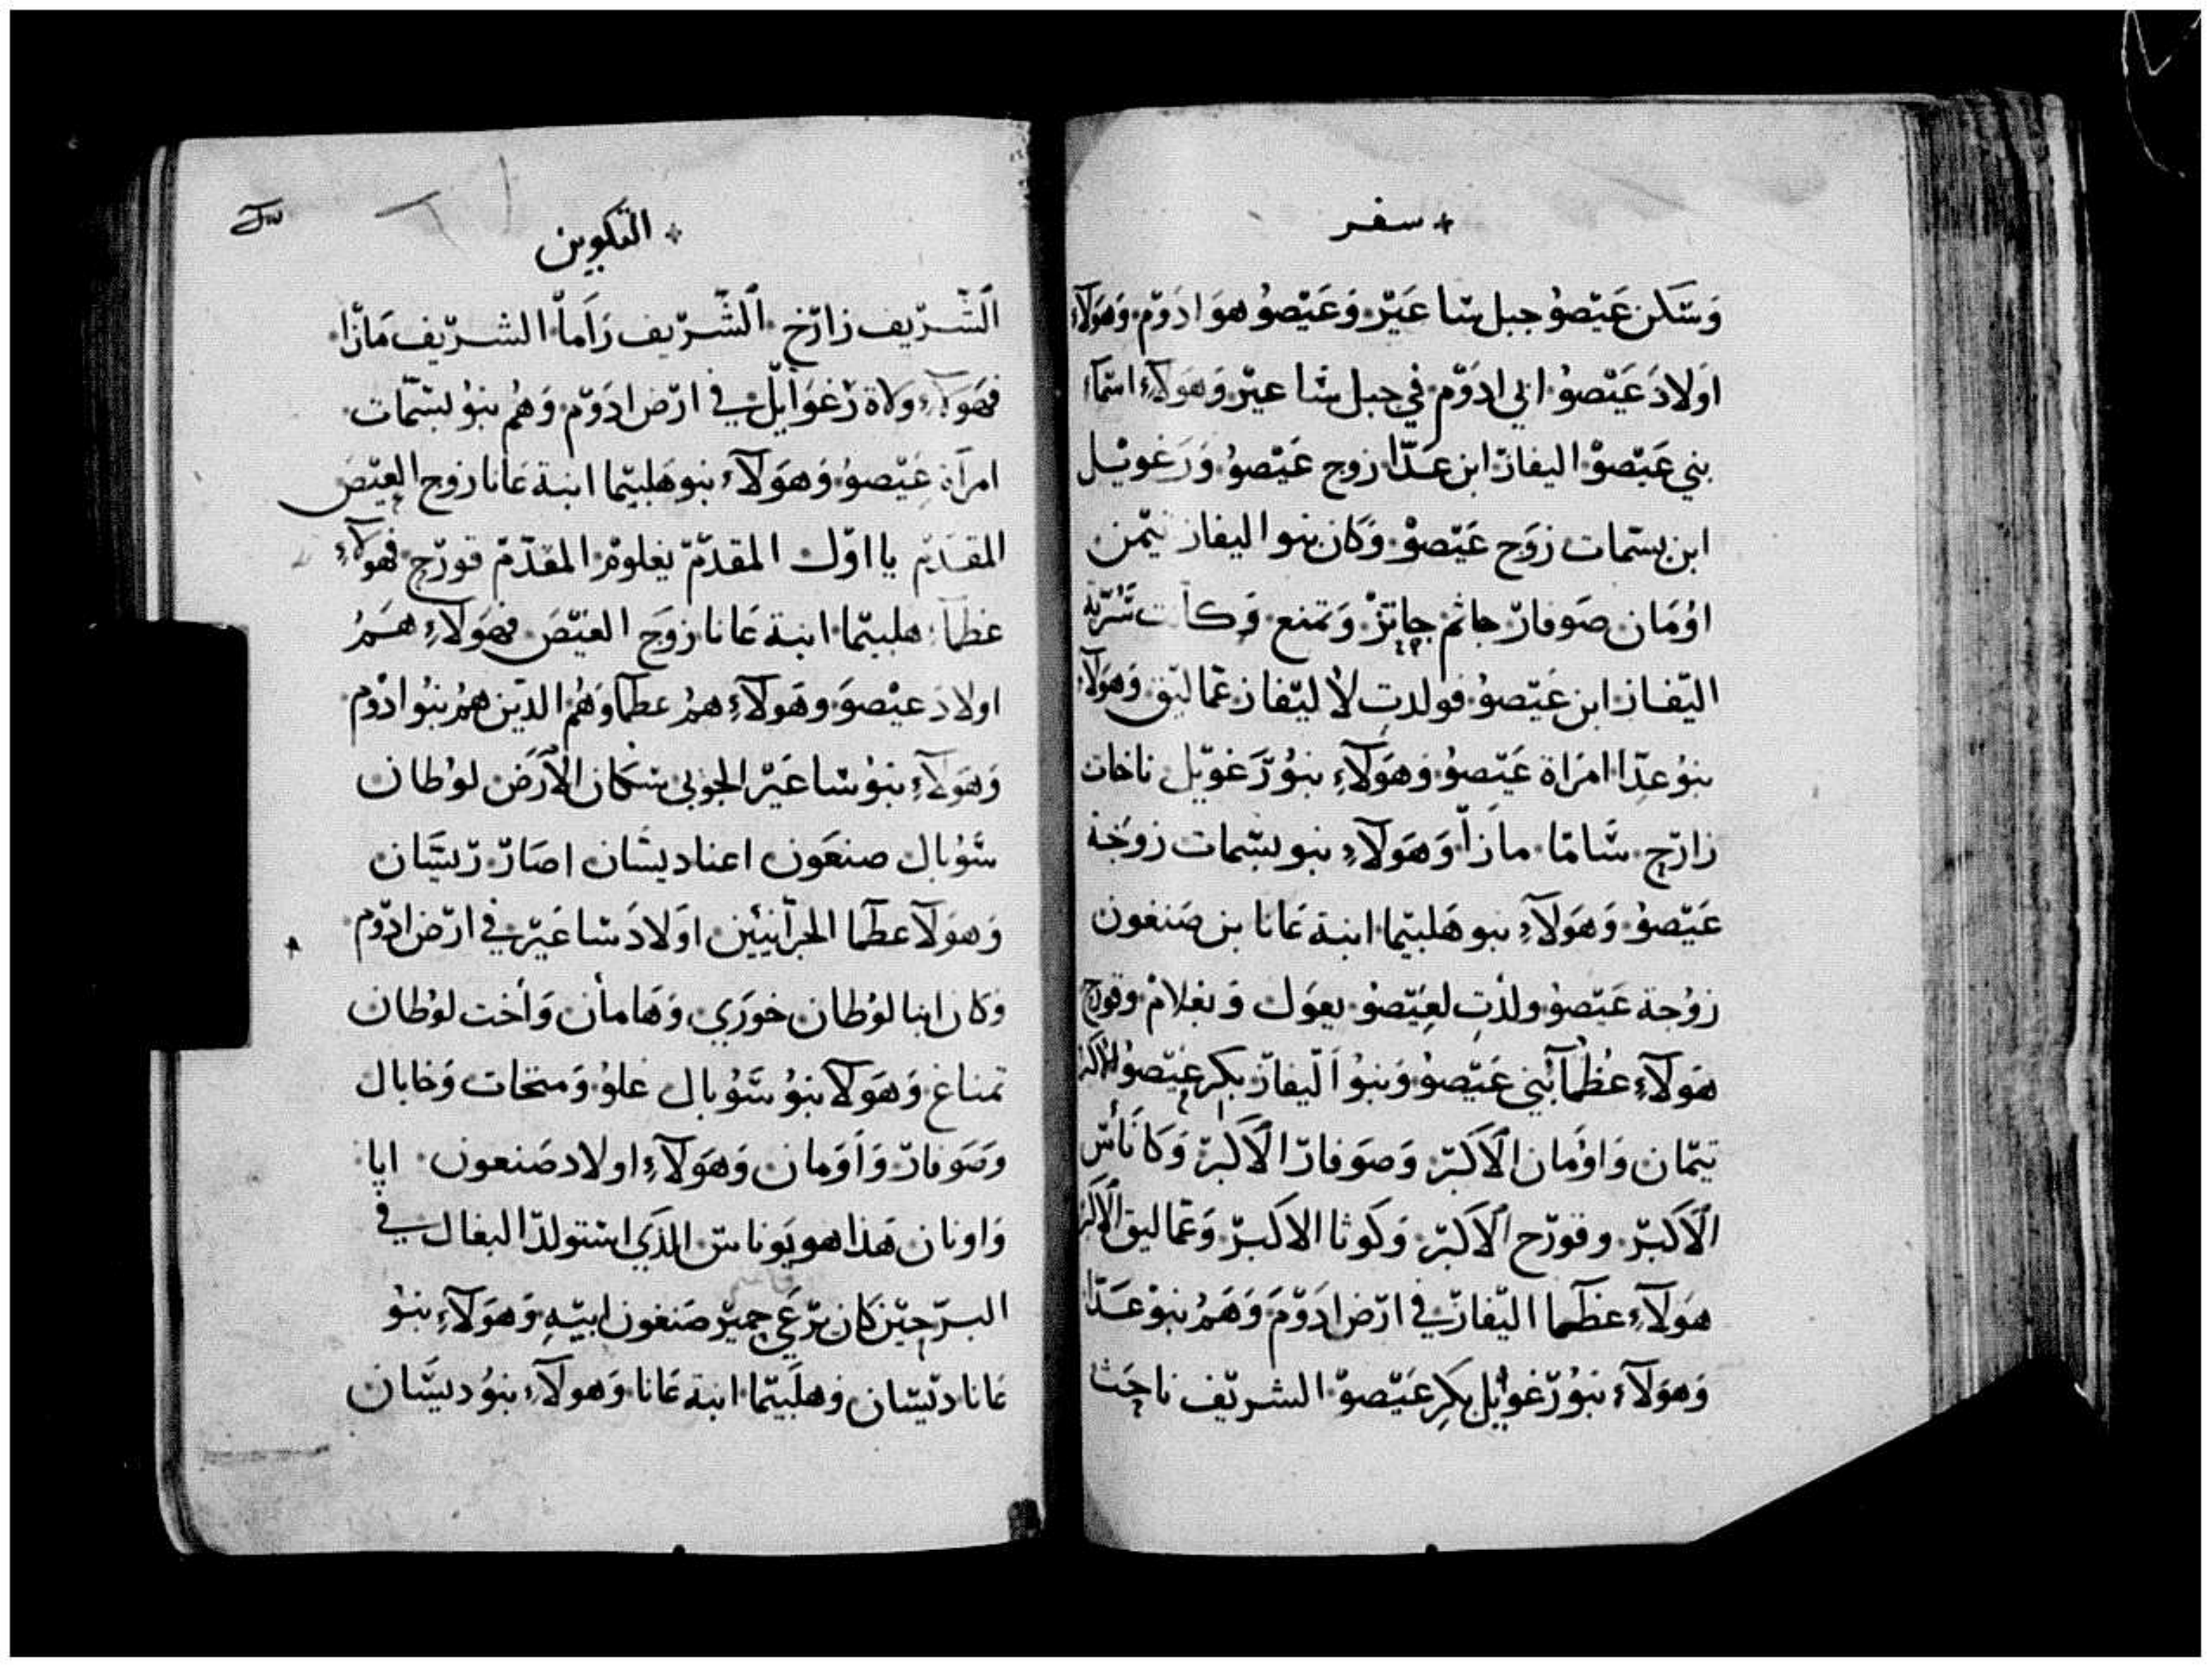 سفر
وَسَكن عَيْصوُ جبل سَا عَيْر وَعَيْصوُ هوَ ادَوْم وَهَوَلآءِ
اوَلادَ عَيْصوُ ابي ادَوْم في جبل سَا عير وَهَوَلآءِ اسمآء
بني عَيْصوْ اليفاز ابن عَدّا زوج عَيْصوُ وَرَغويْل
ابن بسَمات زوَج عَيْصوْ وَكان بنو اليفاز تيْمن
اوُمَان صَوفارْ جاثم جاتزْ وَتمنع وَكانت سُّرّية
اليْفاز ابن عَيْصوُ فولدت لاُليْفاز عَماليْق وَهَوَلآءِ
بنوُ عدّا امرَاة عَيْصوُ وَهَوَلآءِ بنوُ رَغويْل ناخات
زارَح سَّامّا مازَاْ وَهَوَلآءِ بنو بسْمات زوَجَة
عَيْصوُ وَهَوَلآءِ بنو هَلبيْما ابنة عَانا بن صَنغون
زوُجة عَيْصوُ ولدَت لعِيْصوُ يعوَل وَيغلامْ وقورح
هَوَلآءِ عُظمآ بَني عَيْصوُ وَبنوُ اَليفازْ بكر عيْصوُ الاكبر
تيْمان وَاوُمَان الَاكَبرْ وَصَوفارْ الَاكَبرْ وَكَانَاسْ
الَاكَبرْ وقورْح الَاكَبرْ وَكوثا الاكَبرْ وَعَماليق الَاكبر
هَوَلآءِ عظمآ اليْفازْ في ارْض ادَوْمَ وَهَمُ بنوْ عَدّا
وَهوَلآء بنوُ رْغوَئيل بكِر عَيْصوْ الشريْف ناحَث
التكوين
اَلشّرْيف زارْخ اَلشّرْيف رَاَماْ الشرْيف مَازْا
فهَوَلآءِ ولاة رْغوَايْل في ارْض ادَوْم وَهُم بنوُ بسْمات
امرَاة عَيْصوُ وَهوَلآءُ بنو هَلبيْما ابنة عَانا زوج العِيْصَ
المقدَم يا اوّل المقدّمْ يغلومْ المقدّمْ قورْح فهولآءِ
عظمآ هلبيْما ابنة عَانا زوَج العيْصَ فهَوَلآءِ هَمُ
اولادَ عيْصوَ وهَولآءِ همُ عظمآ وَهُم الدين همُ بنوُ ادْوم
وَهَولآءِ بنوُ سَا عَيْر الجوْبي سَكان الاْرَض لوُطان
سَّوُبال صنعَون اعنا ديسَان اصَارْ رْيسَّان
وَهوَلآ عظمآ الحرْانيْين اوَلادَ سَا عَيْر في ارْض ادْوم
وَكان ابنا لوُطان خورَي وَهَامأن وَاُخت لوُطان
تمناغ وَهَوَلآ بنوُ سَّوُبال غلوُ وَمنخات وَخابال
وَصَوفارْ وَاَوَمان وَهَوَلآءِ اولاد صَنعون ايا
وَاونان هَذا هو يَوناسْ الذَي اسْتولدْ البغال في
البرْ حيْن كَان يرْعَي حميْر صَنغون ابيْهِ وَهوَلآءِ بنوُ
عَانا ديْسَان وهلَبيْما ابنة عَانا وَهولآءِ بنوُ ديسَّان